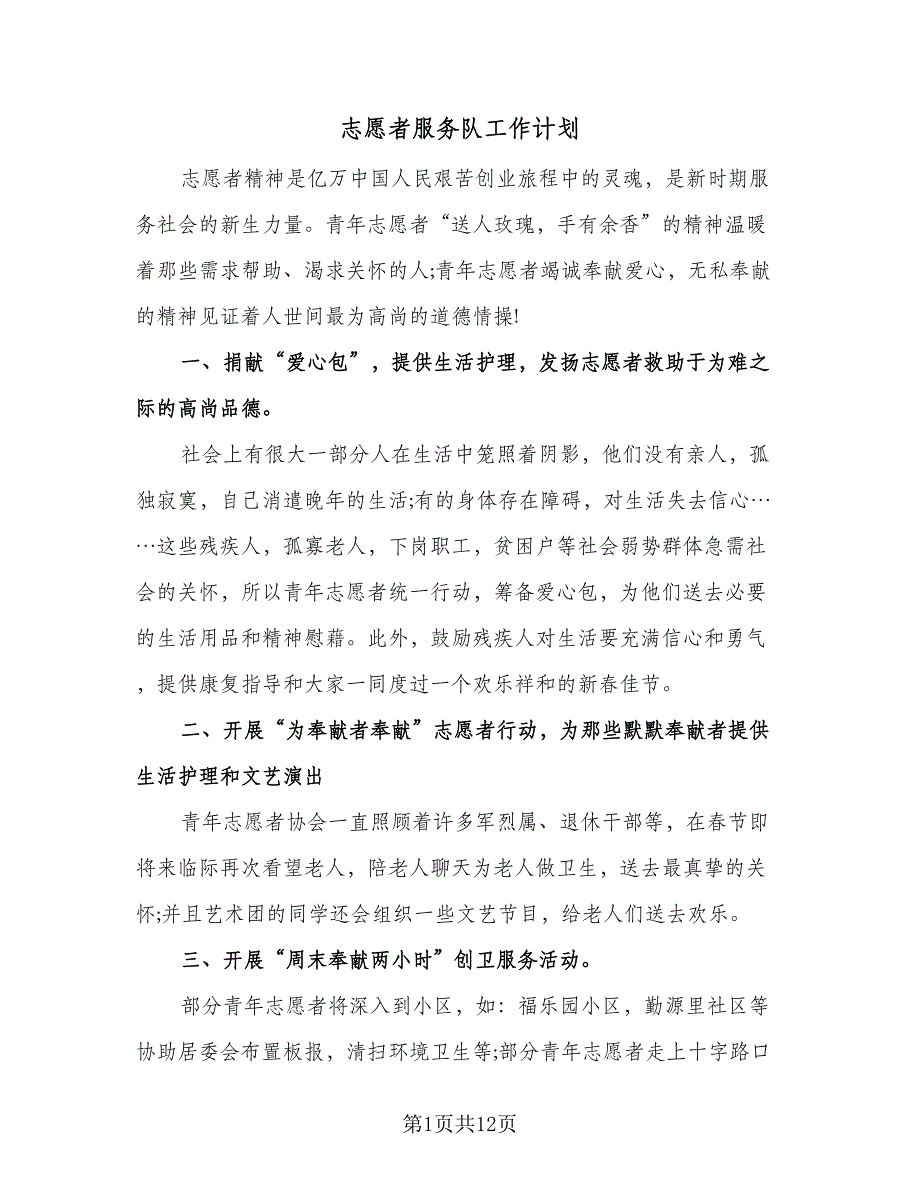 志愿者服务队工作计划
志愿者精神是亿万中国人民艰苦创业旅程中的灵魂，是新时期服
务社会的新生力量。青年志愿者“送人玫瑰，手有余香”的精神温暖
着那些需求帮助、渴求关怀的人;青年志愿者竭诚奉献爱心，无私奉献
的精神见证着人世间最为高尚的道德情操!
一、捐献“爱心包”，提供生活护理，发扬志愿者救助于为难之
际的高尚品德。
社会上有很大一部分人在生活中笼照着阴影，他们没有亲人，孤
独寂寞，自己消遣晚年的生活;有的身体存在障碍，对生活失去信心…
…这些残疾人，孤寡老人，下岗职工，贫困户等社会弱势群体急需社
会的关怀，所以青年志愿者统一行动，筹备爱心包，为他们送去必要
的生活用品和精神慰藉。此外，鼓励残疾人对生活要充满信心和勇气
，提供康复指导和大家一同度过一个欢乐祥和的新春佳节。
二、开展“为奉献者奉献”志愿者行动，为那些默默奉献者提供
生活护理和文艺演出
青年志愿者协会一直照顾着许多军烈属、退休干部等，在春节即
将来临际再次看望老人，陪老人聊天为老人做卫生，送去最真挚的关
怀;并且艺术团的同学还会组织一些文艺节目，给老人们送去欢乐。
三、开展“周末奉献两小时”创卫服务活动。
部分青年志愿者将深入到小区，如：福乐园小区，勤源里社区等
协助居委会布置板报，清扫环境卫生等;部分青年志愿者走上十字路口
第1页共12页